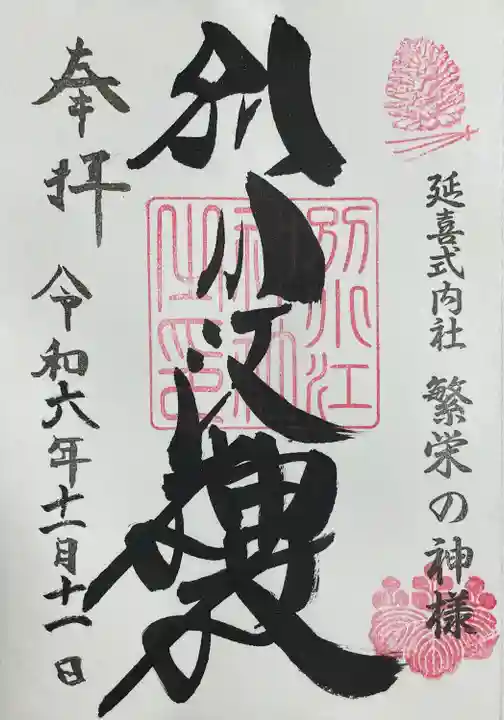 延喜式内社 繁栄の神様
別小江神社
別小江
神社
之印
奉拝
令和六年十一月十一日